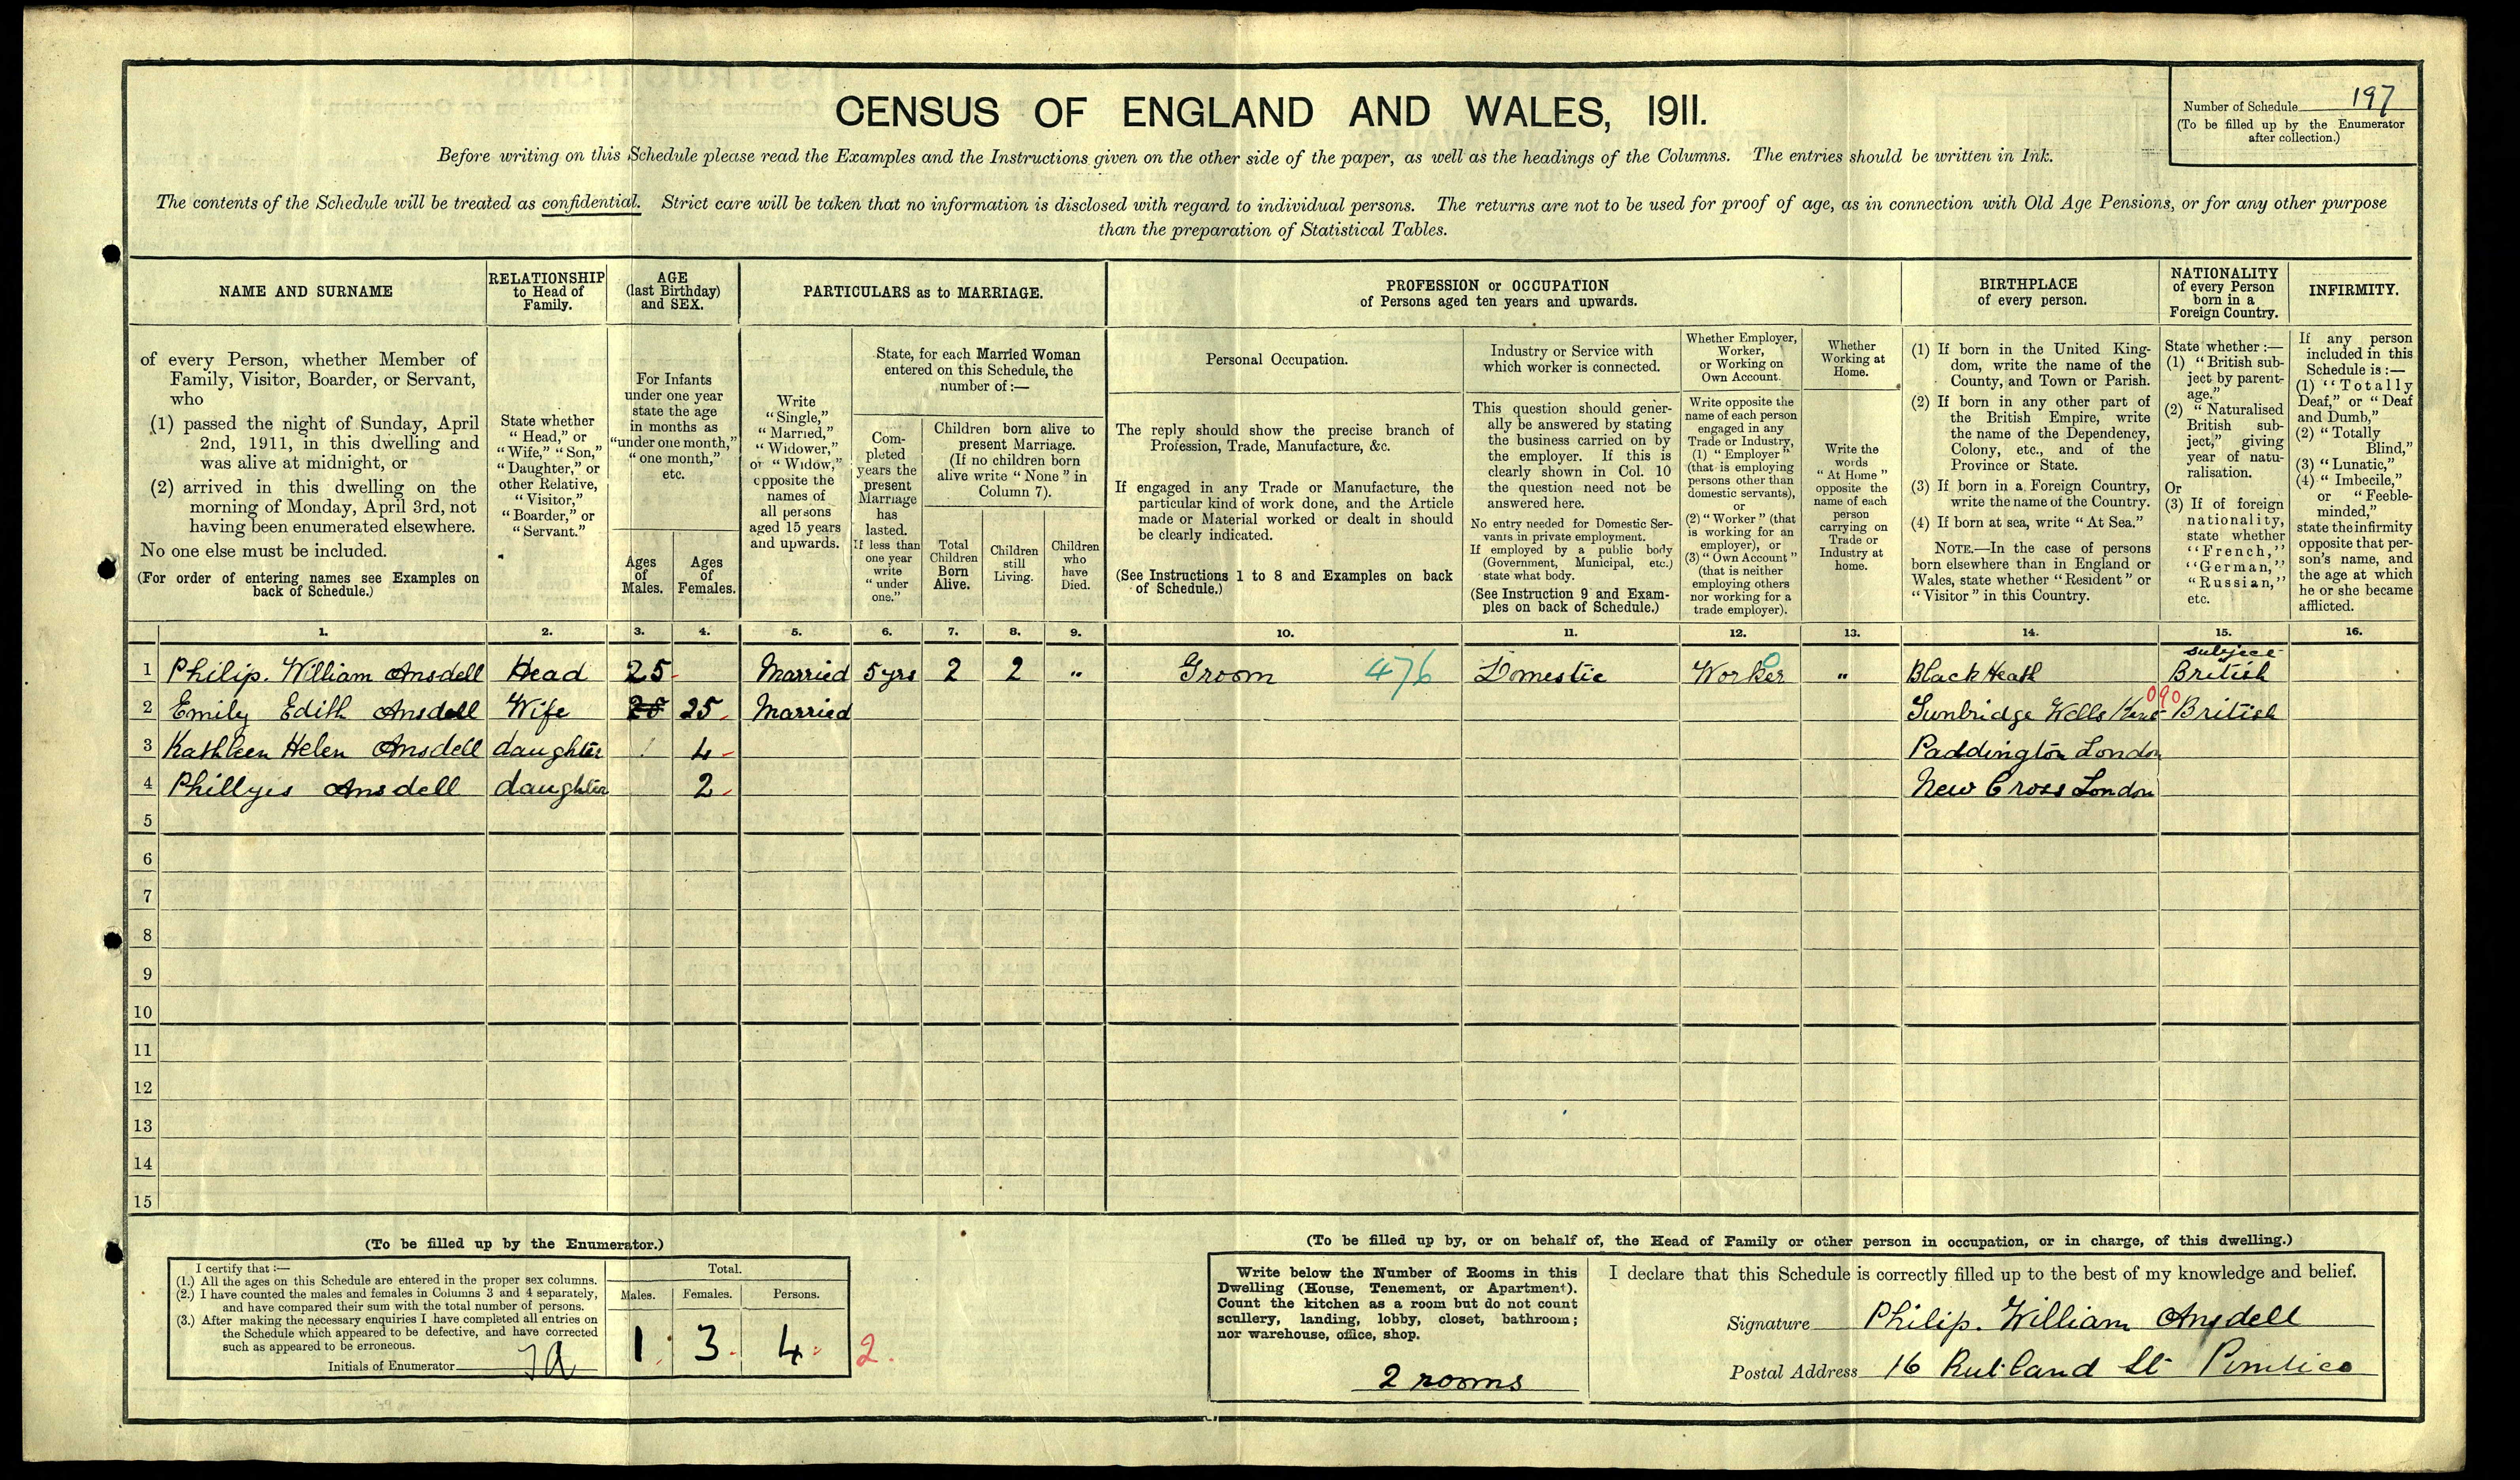 CENSUS OF ENGLAND AND WALES, 1911.
Number of Schedule 197
(To be filled up by the Enumerator
after collection.)
Before writing on this Schedule please read the Examples and the Instructions given on the other side of the paper, as well as the headings of the Columns. The entries should be written in Ink.
The contents of the Schedule will be treated as confidential. Strict care will be taken that no information is disclosed with regard to individual persons. The returns are not to be used for proof of age, as in connection with Old Age Pensions, or for any other purpose
than the preparation of Statistical Tables.
NAME AND SURNAME
of every Person, whether Member of
Family, Visitor, Boarder, or Servant,
who
(1) passed the night of Sunday, April
2nd, 1911, in this dwelling and
was alive at midnight, or
(2) arrived in this dwelling on the
morning of Monday, April 3rd, not
having been enumerated elsewhere.
No one else must be included.
(For order of entering names see Examples on
back of Schedule.)
RELATIONSHIP
to Head of
Family.
State whether
"Head," or
"Wife," "Son,"
"Daughter," or
other Relative,
"Visitor,"
"Boarder," or
"Servant."
AGE
(last Birthday)
and SEX.
For Infants
under one year
state the age
in months as
"under one month,"
"one month,"
etc.
Ages
of
Males.
Ages
of
Females.
PARTICULARS as to MARRIAGE.
Write
"Single,"
"Married,"
"Widower,"
or "Widow,"
opposite the
names of
all persons
aged 15 years
and upwards.
State, for each Married Woman
entered on this Schedule, the
number of:—
Com-
pleted
years the
present
Marriage
has
lasted.
If less than
one year
write
"under
one."
Children born alive to
present Marriage.
(If no children born
alive write "None" in
Column 7).
Total
Children
Born
Alive.
Children
still
Living.
Children
who
have
Died.
PROFESSION or OCCUPATION
of Persons aged ten years and upwards.
Personal Occupation.
The reply should show the precise branch of
Profession, Trade, Manufacture, &c.
If engaged in any Trade or Manufacture, the
particular kind of work done, and the Article
made or Material worked or dealt in should
be clearly indicated.
(See Instructions 1 to 8 and Examples on back
of Schedule.)
Industry or Service with
which worker is connected.
This question should gener-
ally be answered by stating
the business carried on by
the employer. If this is
clearly shown in Col. 10
the question need not be
answered here.
No entry needed for Domestic Ser-
vants in private employment.
If employed by a public body
(Government, Municipal, etc.)
state what body.
(See Instruction 9 and Exam-
ples on back of Schedule.)
Whether Employer,
Worker,
or Working on
Own Account.
Write opposite the
name of each person
engaged in any
Trade or Industry,
(1) "Employer"
(that is employing
persons other than
domestic servants),
or
(2) "Worker" (that
is working for an
employer), or
(3) "Own Account"
(that is neither
employing others
nor working for a
trade employer).
Whether
Working at
Home.
Write the
words
"At Home"
opposite the
name of each
person
carrying on
Trade or
Industry at
home.
BIRTHPLACE
of every person.
(1) If born in the United King-
dom, write the name of the
County, and Town or Parish.
(2) If born in any other part of
the British Empire, write
the name of the Dependency,
Colony, etc., and of the
Province or State.
(3) If born in a Foreign Country,
write the name of the Country.
(4) If born at sea, write "At Sea."
NOTE.—In the case of persons
born elsewhere than in England or
Wales, state whether "Resident" or
"Visitor" in this Country.
NATIONALITY
of every Person
born in a
Foreign Country.
State whether:—
(1) "British sub-
ject by parent-
age."
(2) "Naturalised
British sub-
ject," giving
year of natu-
ralisation.
Or
(3) If of foreign
nationality,
state whether
"French,"
"German,"
"Russian,"
etc.
INFIRMITY.
If any person
included in this
Schedule is:—
(1) "Totally
Deaf," or "Deaf
and Dumb,"
(2) "Totally
Blind,"
(3) "Lunatic,"
(4) "Imbecile,"
or "Feeble-
minded,"
state the infirmity
opposite that per-
son's name, and
the age at which
he or she became
afflicted.
1. 2. 3. 4. 5. 6. 7. 8. 9. 10. 11. 12. 13. 14. 15. 16.
1 Philip. William Ansdell Head 25 Married 5 yrs 2 2 " Groom 476 Domestic Worker " Black Heath British subject
2 Emily Edith Ansdell Wife 25 Married Tunbridge Wells Kent 090 British
3 Kathleen Helen Ansdell daughter 4 Paddington London
4 Phillyis Ansdell daughter 2 New Cross London
5
6
7
8
9
10
11
12
13
14
15
(To be filled up by the Enumerator.)
I certify that:—
(1.) All the ages on this Schedule are entered in the proper sex columns.
(2.) I have counted the males and females in Columns 3 and 4 separately,
and have compared their sum with the total number of persons.
(3.) After making the necessary enquiries I have completed all entries on
the Schedule which appeared to be defective, and have corrected
such as appeared to be erroneous.
Initials of Enumerator
Total.
Males. Females. Persons.
1 3 4 2.
(To be filled up by, or on behalf of, the Head of Family or other person in occupation, or in charge, of this dwelling.)
Write below the Number of Rooms in this
Dwelling (House, Tenement, or Apartment).
Count the kitchen as a room but do not count
scullery, landing, lobby, closet, bathroom;
nor warehouse, office, shop.
2 rooms
I declare that this Schedule is correctly filled up to the best of my knowledge and belief.
Signature Philip. William Ansdell
Postal Address 16 Rutland St Pimlico